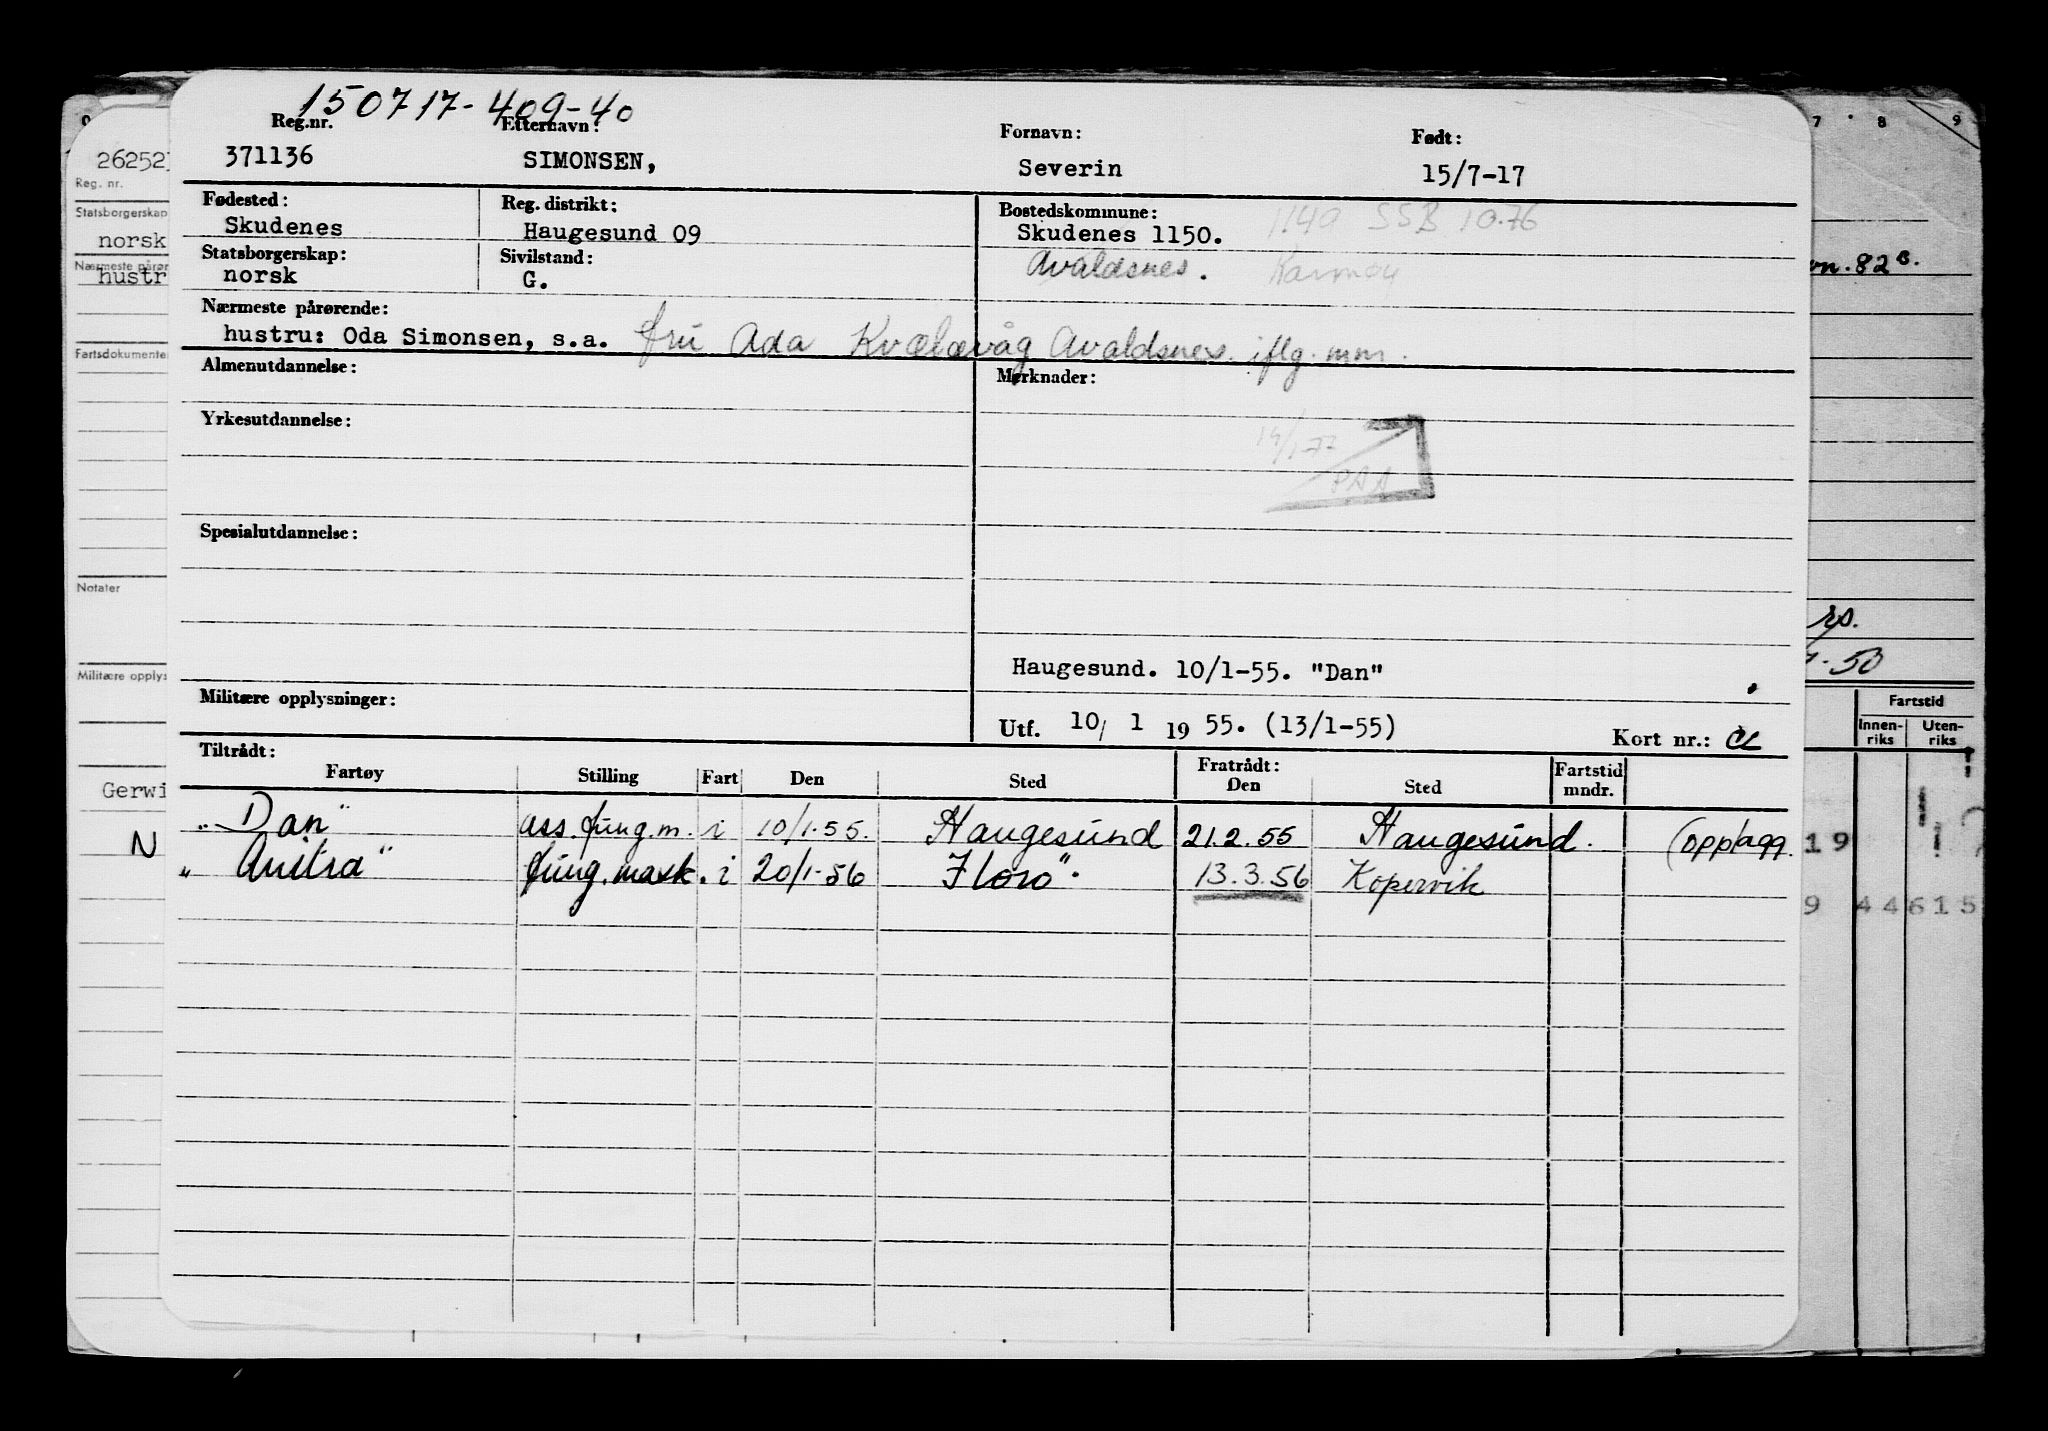 150717-409-40
Reg.nr. Efternavn: Fornavn: Født:
371136 SIMONSEN, Severin 15/7-17
Fødested: Reg. distrikt: Bostedskommune: 1149 SSB 10.76
Skudenes Haugesund 09 Skudenes 1150.
Statsborgerskap: Sivilstand: Avaldsnes. Karmøy
norsk G.
Nærmeste pårørende:
hustru: Oda Simonsen, s.a. fru Ada Kvalavåg Avaldsnes. iflg. mm.
Almenutdannelse: Merknader:
Yrkesutdannelse:
14/1-77
PAA
Spesialutdannelse:
Haugesund. 10/1-55. "Dan"
Militære opplysninger:
Utf. 10/ 1 19 55. (13/1-55) Kort nr.:
Tiltrådt: Fratrådt:
Fartøy Stilling Fart Den Sted Den Sted Fartstid mndr.
"Dan" ass. fung.m. i 10/1-55. Haugesund 21.2.55 Haugesund. (opplagg.
"Anitra" fung.mask. i 20/1-56 Florø. 13.3.56 Kopervik
26252
Reg. nr.
Statsborgerskap
norsk
Nærmeste pårør
hustr
Fartsdokumente
Notater
Militære opplys
Gerwi
N
7 8 9
vn. 82 B.
rs.
-50
Fartstid
Innen-riks Uten-riks
19
9 44 615